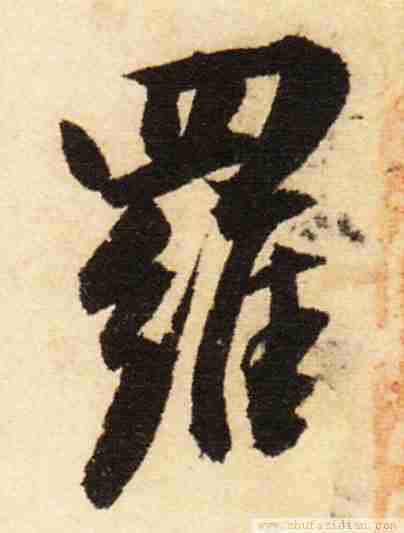 羅
www.shufazidian.com